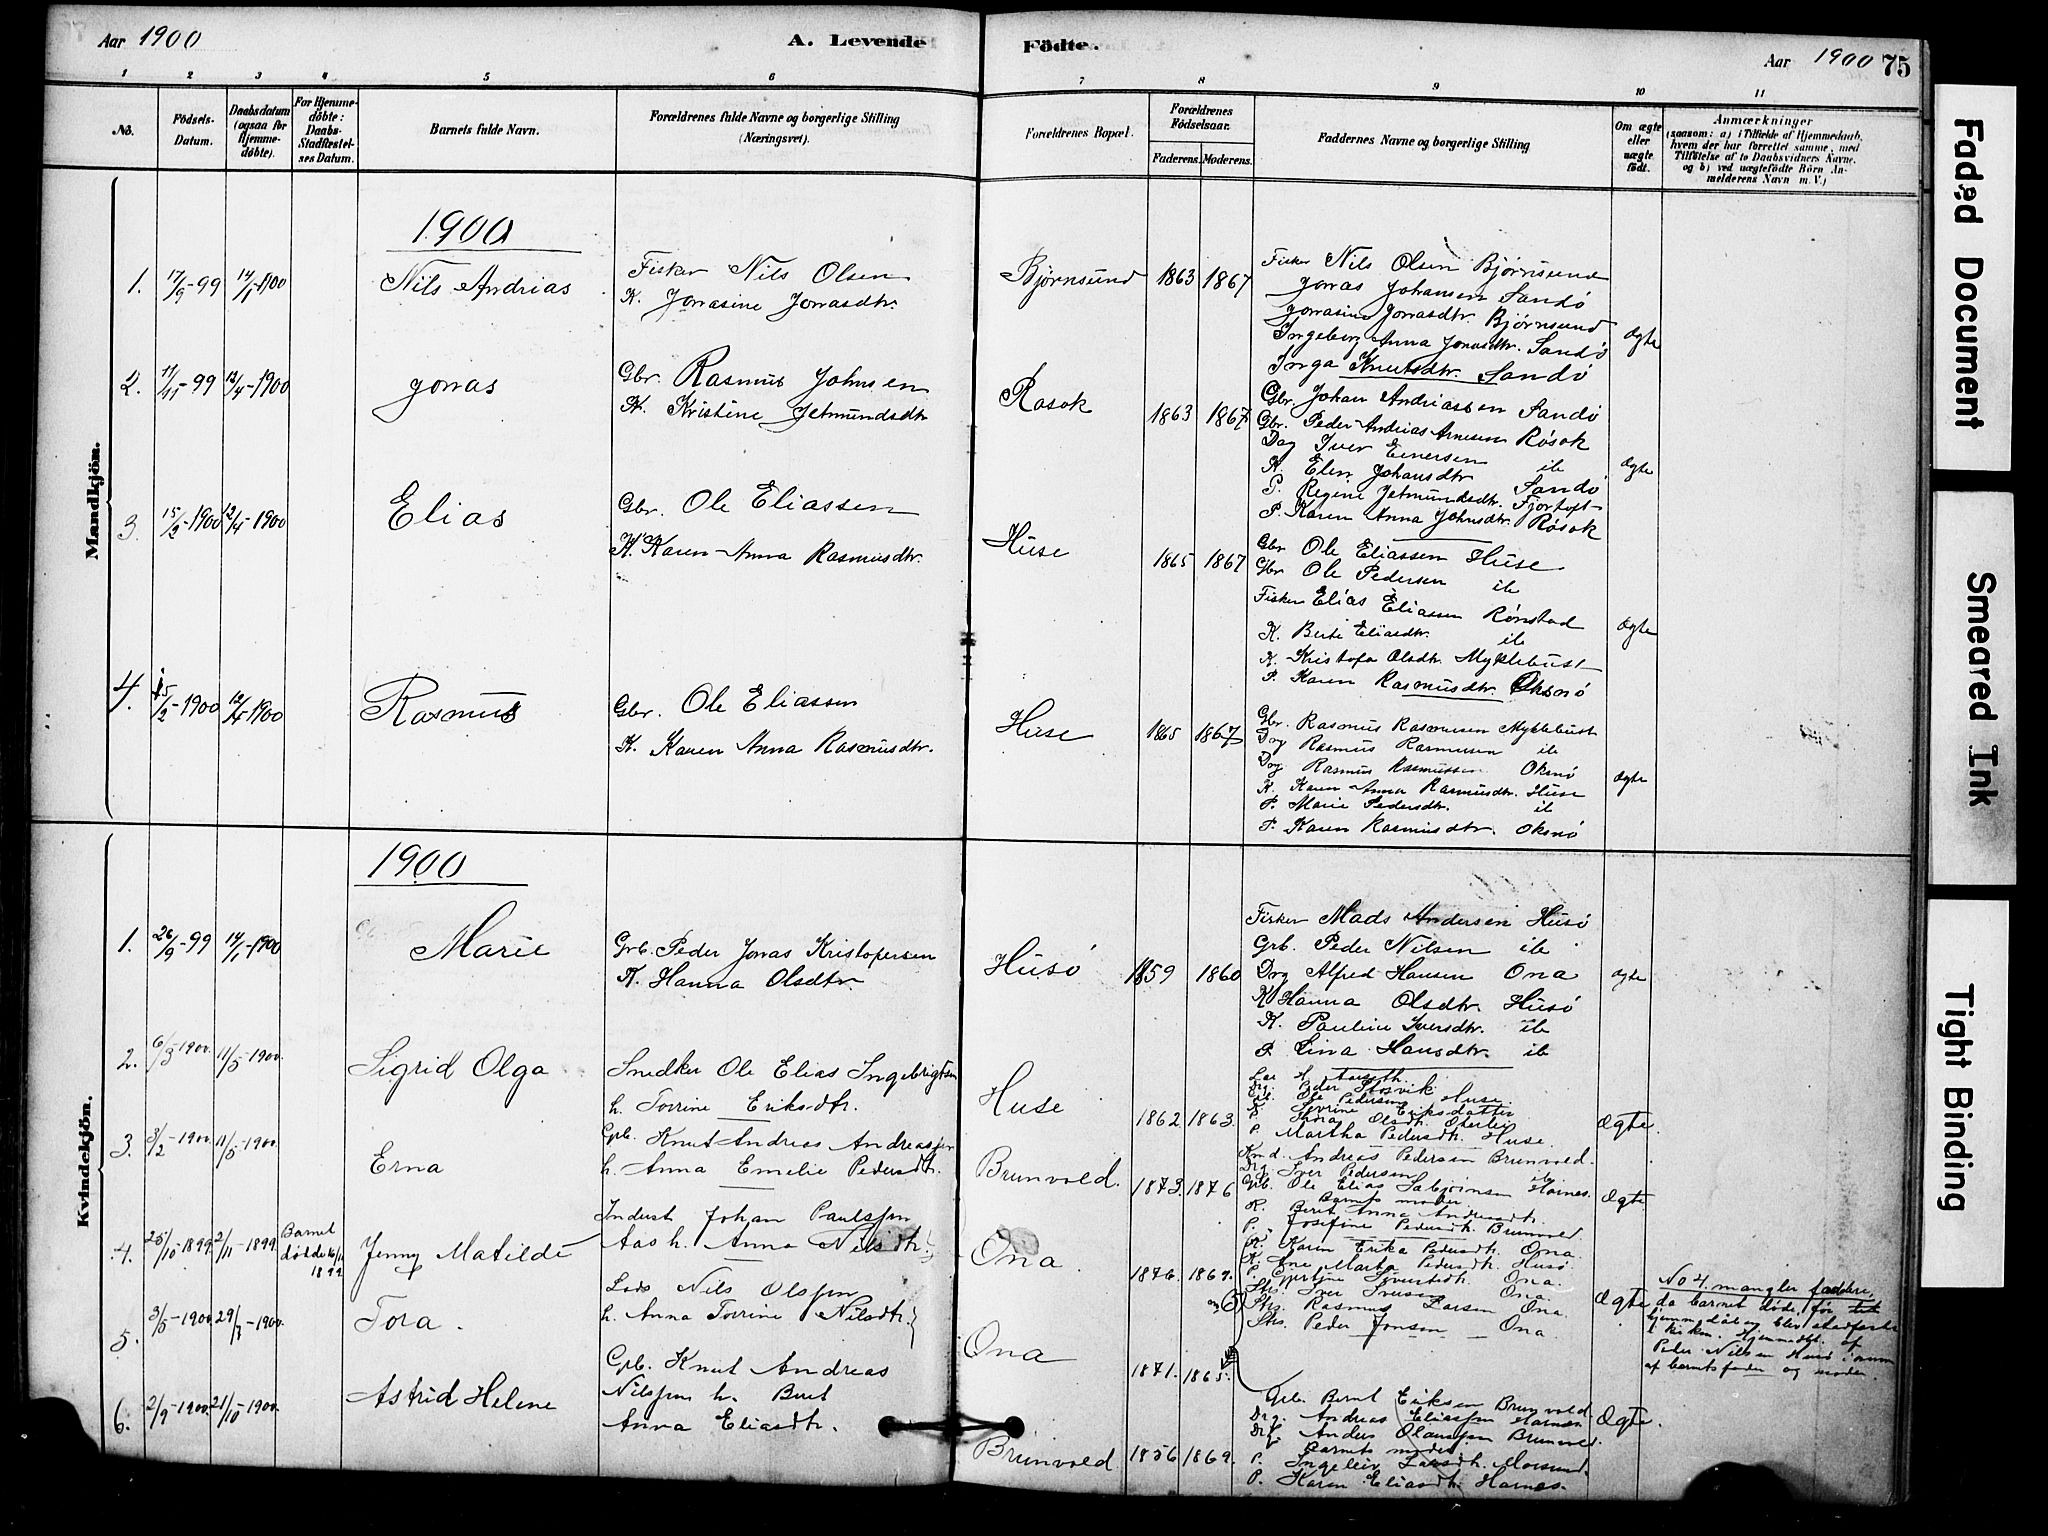 Aar 1900
A. Levende
Födte.
Aar 1900
75
1 2 3 4 5 6 7 8 9 10 11
No.
Födsels-Datum.
Daabsdatum (ogsaa for Hjemme-döbte).
For Hjemme-döbte: Daabs-Stadfæstel-ses Datum.
Barnets fulde Navn.
Forældrenes fulde Navne og borgerlige Stilling
(Næringsvei).
Forældrenes Bopæl.
Forældrenes Födselsaar.
Faderens. Moderens.
Faddernes Navne og borgerlige Stilling
Om ægte eller uægte födt.
Anmærkninger
(saasom: a) i Tilfælde af Hjemmedaab,
hvem der har forrettet samme, med
Tilföielse af to Daabsvidners Navne,
og b) ved uægtefödte Börn An-
melderens Navn m. V.)
Mandkjön.
1900
1. 17/9-99 14/1-1900 Nils Andrias
Fisker Nils Olsen
K. Jonasine Jonasdtr.
Bjørnsund 1863 1867
Fisker Nils Olsen Bjørnsund
Jonas Johansen Sandö
Jonasine Jonasdtr. Bjørnsund
Ingeberg Anna Jonasdtr. Sandö
Inga Knutsdtr. Sandö
Ægte
2. 12/4-1900 Jonas
Gbr. Rasmus Johnsen
K. Kristine Jetmundsdtr
Rosok 1863 1867
Gbr. Johan Andriassen Sandö
Gbr. Peder Andrias Arnesen Røsok
Iver Einersen ib
K. Elen Johansdtr Sandö
P. Regine Jetmundsdtr. Fjørtoft
P. Karen Anna Johnsdtr. Røsok
Ægte
3. 15/2-1900 12/4-1900 Elias
Gbr. Ole Eliassen
K. Karen Anna Rasmusdtr.
Huse 1865 1867
Gbr Ole Eliassen Huse
Gbr Ole Pedersen ib
Fisker Elias Eliassen Rønstad
K. Berte Eliasdtr. ib
K. Kristofa Olsdtr. Myklebust
P. Karen Rasmusdtr. Oksnö
Ægte
4. 15/2-1900 12/4-1900 Rasmus
Gbr. Ole Eliassen
K. Karen Anna Rasmusdtr.
Huse 1865 1867
Gbr. Rasmus Rasmusen Myklebust
Drg Rasmus Rasmusen ib
Drg Rasmus Rasmussen Oksnö
K. Karen Anna Rasmusdtr. Huse
P. Marie Pedersdtr. ib
P. Karen Rasmusdtr. Oksnö
Ægte
Kvindekjön.
1900
1. 26/9-99 14/1-1900 Marie
Grb. Peder Jonas Kristofersen
K. Hanna Olsdtr.
Husö 1859 1860
Fisker Mads Andersen Husö
Grb. Peder Nilsen ib
Drg Alfred Hansen Ona
K Hanna Olsdtr. Husö
K. Pauline Iversdtr. ib
P. Lina Hansdtr. ib
Ægte
2. 6/3-1900. 11/5-1900. Sigrid Olga
Snedker Ole Elias Ingebrigtsen
h. Torrine Eriksdtr.
Huse 1862 1863.
Ole Pedersen Huse.
P. Martha Pedersdtr. Huse.
Ægte.
3. 3/2-1900 11/5-1900. Erna
Grb. Knut Andreas Andreassen
h. Anna Emelie Pedersdtr.
Brunvold. 1873. 1876
Andreas Pedersen Brunvold.
Drg. Iver Pedersen ib
Grb. Ole Elias Harnes.
Barnets moder
K. Berit Anna Andreasdtr.
P. Josefine Pedersdtr. Brunvold.
Ægte
4. 25/10-1899. 2/11-1899. Barnet døde 1899 Jenny Matilde
Indust Johan Paulsen
Aas h. Anna Nilsdtr.
Ona. 1876. 1867.
K. Karen Erika Pedersdtr. Ona.
K. Ane Marta Pedersdtr. Husö.
Ona.
Iver Iversen Ona.
Rasmus Larsen Ona.
Peder Jonsen Ona.
Ægte
No 4. mangler faddere,
da barnet døde, før
hjemmedöbt og blev stadfæstet
i kirken. Hjemmedöbt af
Peder Nilsen Husö
af barnets fader og moder.
5. 3/5-1900 29/7-1900. Tora.
Lods Nils Olsen
h. Anna Torrine Nilsdtr
Ona 1871. 1865.
6. 2/9-1900. 21/10-1900. Astrid Helene
Grb. Knut Andreas
Nilssen h. Berit
Anna Eliasdtr.
Brunvold 1856 1869.
Grb. Bernt Eriksen Brunvold
Drg. Andreas Eliassen Harnes.
Drg. Anders Olaussen Brunvold.
Barnets moder
P. Ingeleiv Larsdtr. Morsund.
P. Karen Eliasdtr. Harnes.
Ægte.
Faded Document
Smeared Ink
Tight Binding